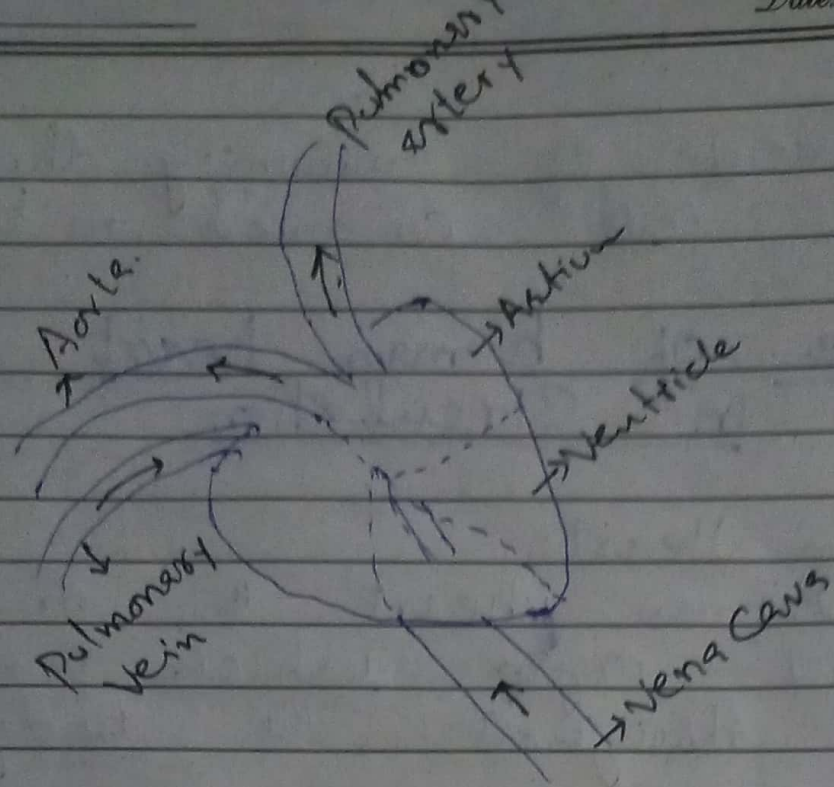 Date.
Pulmonary
artery
Aorta.
Artium
Ventricle
Pulmonary
Vein
Vena Cava